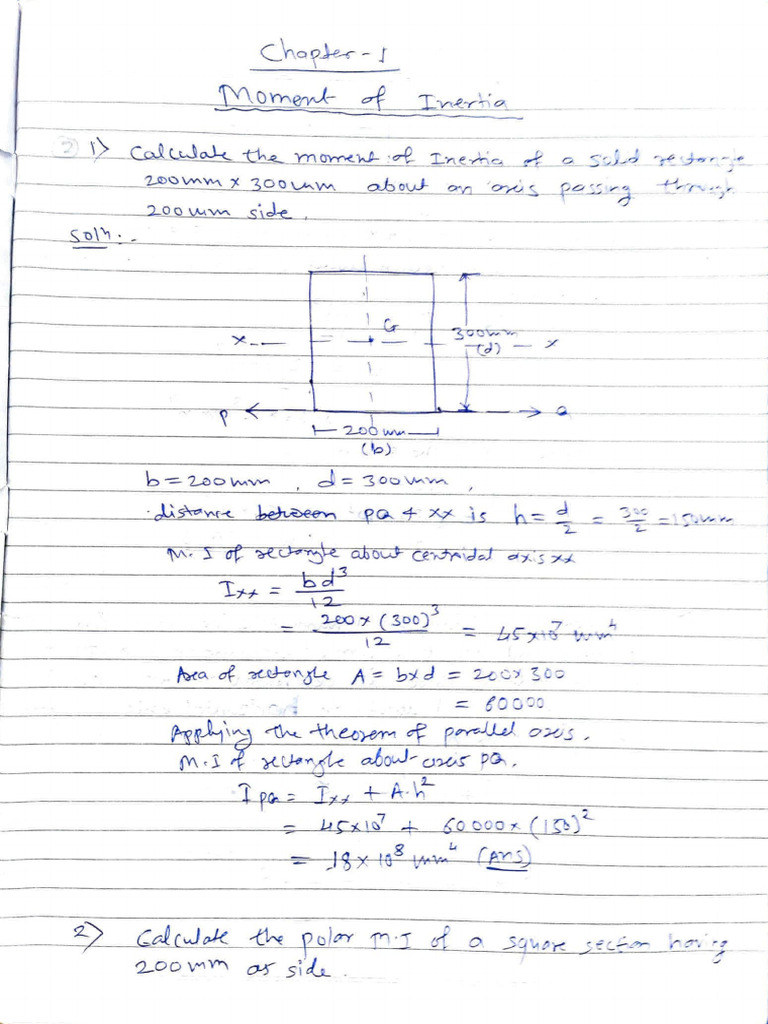 Chapter-1
Moment of Inertia
1) Calculate the moment of Inertia of a solid rectangle
200mm x 300mm about an axis passing through
200mm side.
Soln:-
G
x - - x
300mm
(d)
P Q
200mm
(b)
b = 200mm , d = 300mm ,
distance between PQ & xx is h = d/2 = 300/2 = 150mm
M.I of rectangle about centroidal axis xx
Ixx = bd³/12
= 200 x (300)³/12 = 45x10⁷ mm⁴
Area of rectangle A = bxd = 200x300
= 60000
Applying the theorem of parallel axis.
M.I of rectangle about axis PQ.
I PQ = Ixx + A.h²
= 45x10⁷ + 60000x(150)²
= 18x10⁸ mm⁴ (Ans)
2) Calculate the polar M.I of a square section having
200mm as side.